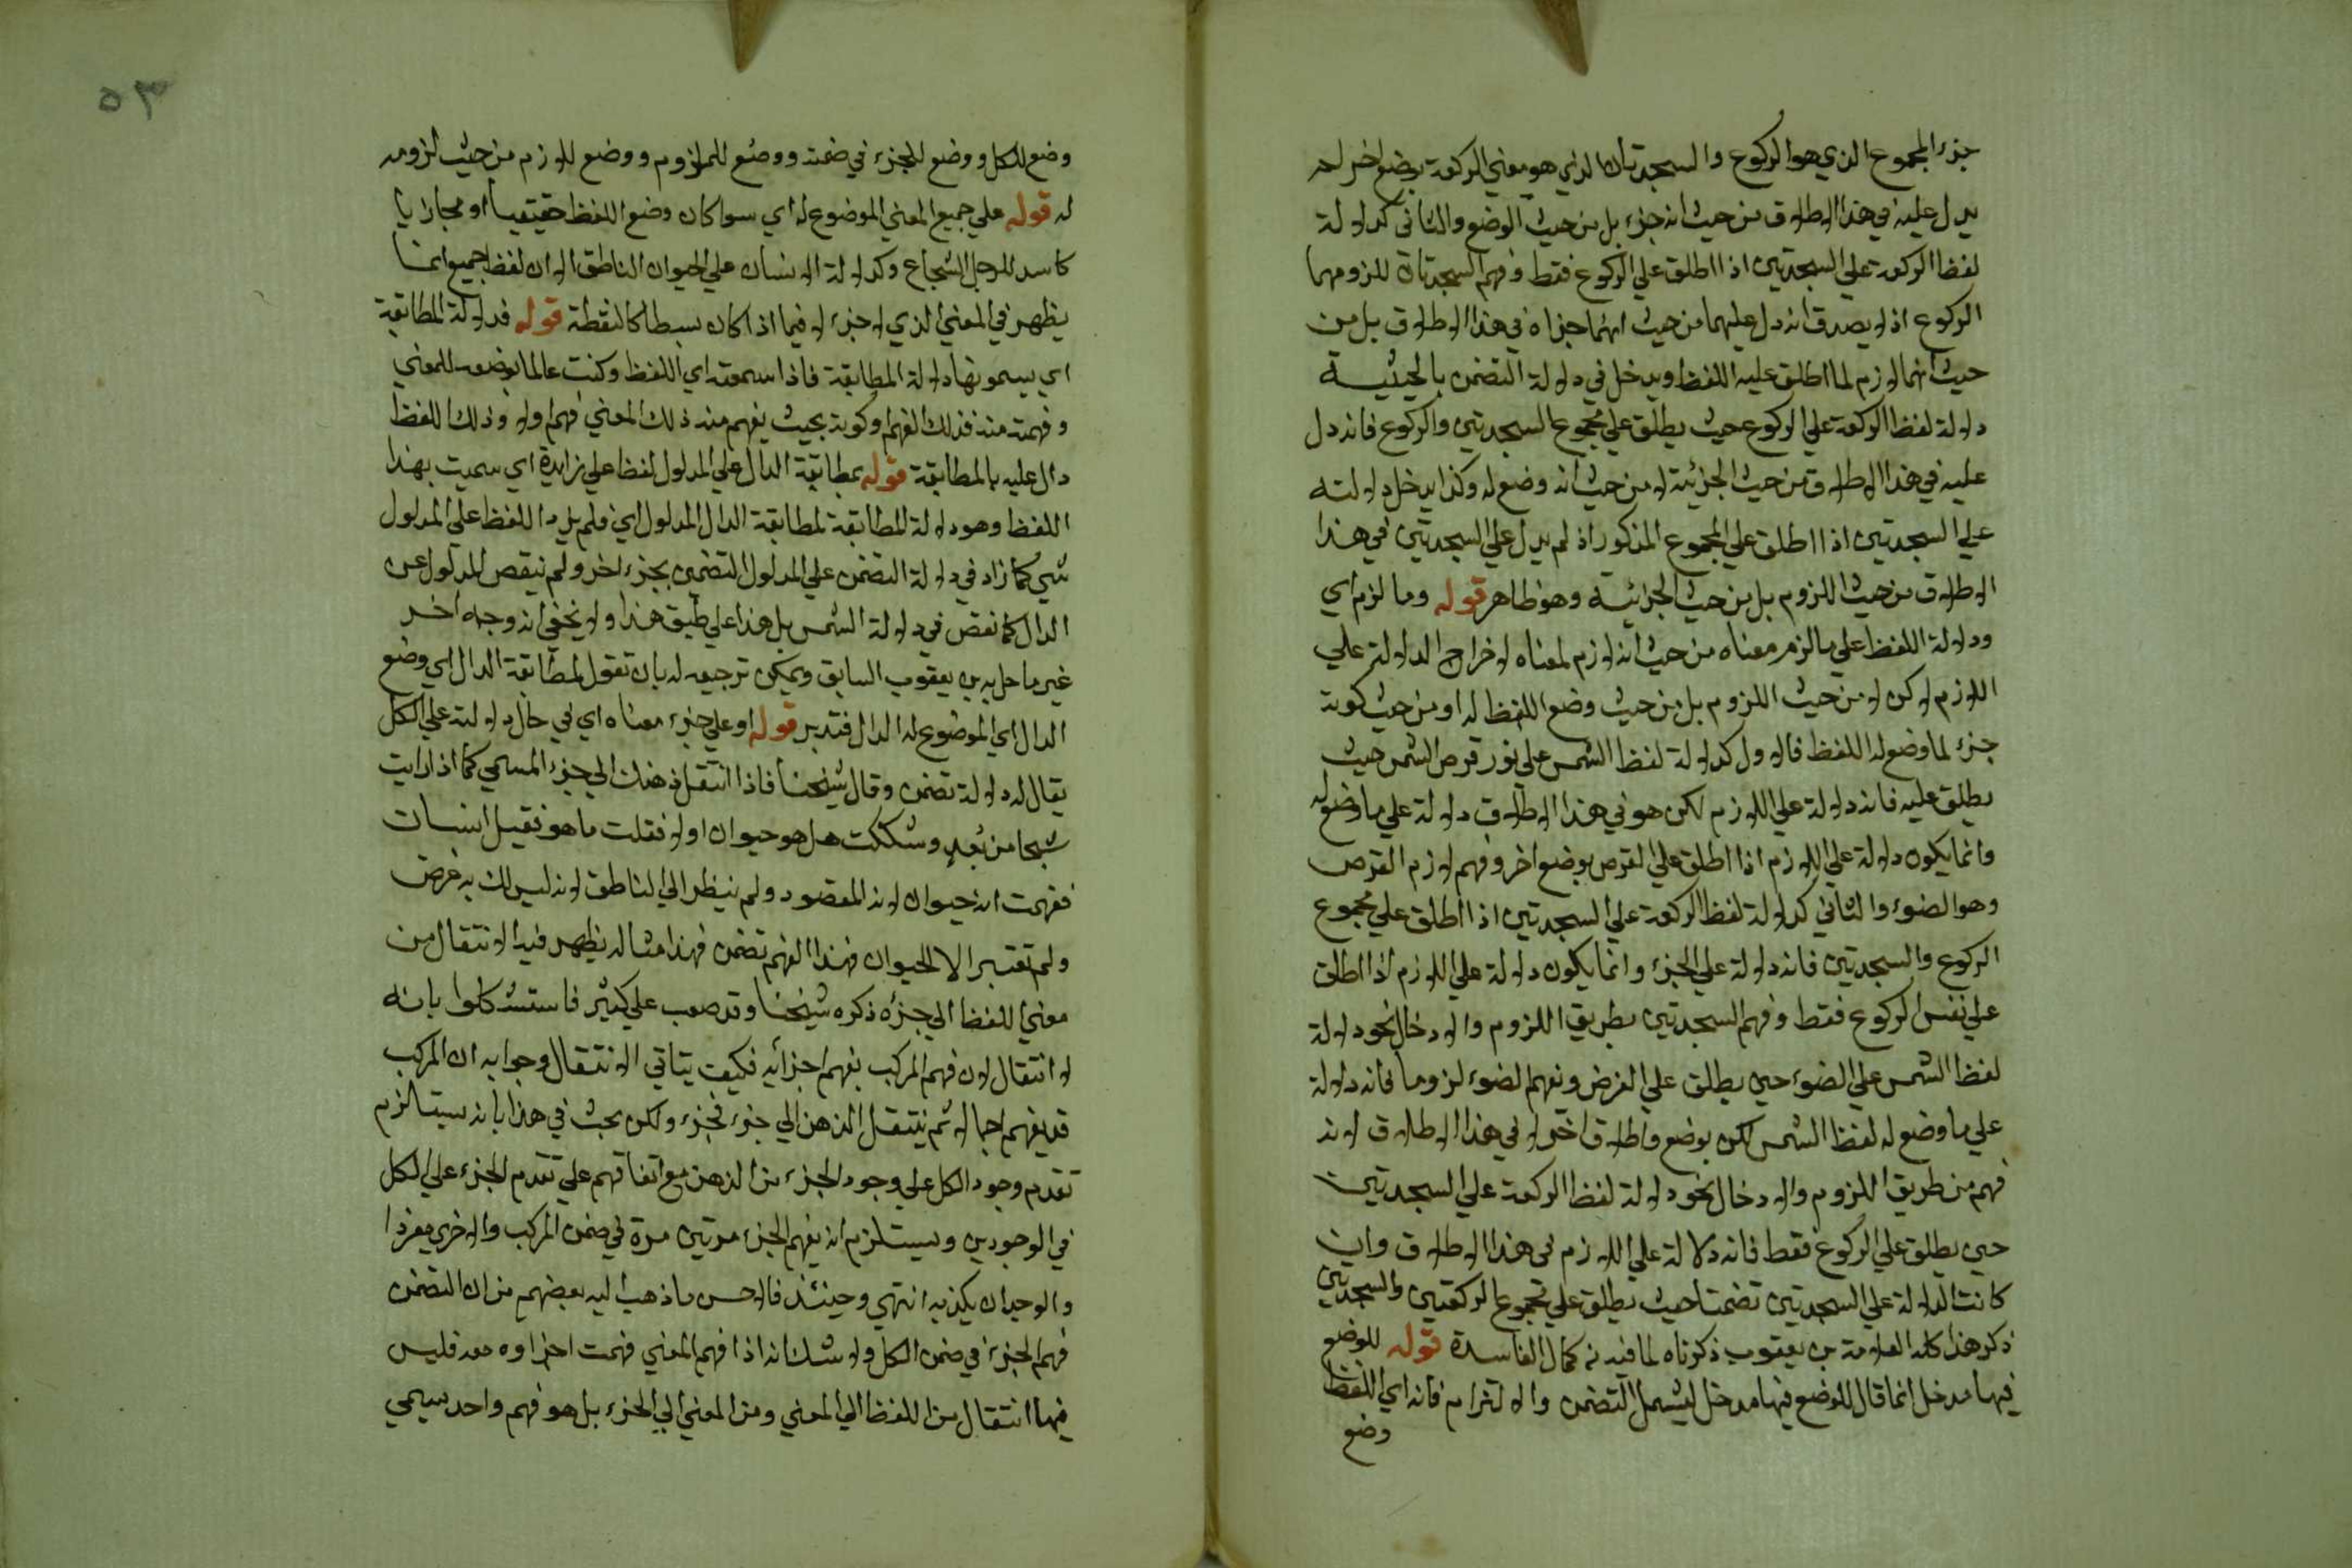 جزء المجموع الذي هو الركوع والسجدتان الذي هو معني الركعة بوضع اخر لم
يدل عليه في هذا الاطلاق من حيث انه جزء بل من حيث الوضع والثاني كدلالة
لفظ الركعة علي السجدتين اذا اطلق علي الركوع فقط وفهم السجدتان للزومهما
الركوع اذ لا يصدق انه دل عليهما من حيث انهما جزاه في هذا الاطلاق بل من
حيث انهما لازم لما اطلق عليه اللفظ ويدخل في دلالة التضمن بالحيثية
دلالة لفظ الركعة علي الركوع حيث يطلق علي مجموع السجدتين والركوع فانه دل
عليه في هذا الاطلاق من حيث الجزئية لا من حيث انه وضع له وكذا يدخل دلالته
علي السجدتين اذا اطلق علي المجموع المذكور اذ لم يدل علي السجدتين في هذا
الاطلاق من حيث اللزوم بل من حيث الجزائية وهو ظاهر قوله وما لزم اي
ودلالة اللفظ علي ما لزم معناه من حيث انه لازم لمعناه لاخراج الدلالة علي
اللازم لاكن لا من حيث اللزوم بل من حيث وضع اللفظ له او من حيث كونه
جزء لما وضع له اللفظ فالاول كدلالة لفظ الشمس علي نور قرص الشمس حيث
يطلق عليه فانه دلالة علي اللازم لكن هو في هذا الاطلاق دلالة علي ما وضع له
وانما يكون دلالة علي اللازم اذا اطلق علي القرص بوضع اخر وفهم لازم القرص
وهو الضوء والثاني كدلالة لفظ الركعة علي السجدتين اذا اطلق علي مجموع
الركوع والسجدتين فانه دلالة علي الجزء وانما يكون دلالة علي اللازم اذا اطلق
علي نفس الركوع فقط وفهم السجدتين بطريق اللزوم والادخال نحو دلالة
لفظ الشمس علي الضوء حين يطلق علي القرص ونفهم الضوء لزوما فانه دلالة
علي ما وضع له لفظ الشمس لكن بوضع واطلاق اخر لا في هذا الاطلاق لانه
فهم من طريق اللزوم والادخال نحو دلالة لفظ الركعة علي السجدتين
حين يطلق علي الركوع فقط فانه دلالة علي اللازم في هذا الاطلاق وان
كانت الدلالة علي السجدتين تضمنا حيث يطلق علي مجموع الركعتين والسجدتين
ذكر هذا كله العلامة بن يعقوب ذكرناه لما فيه من كمال الفاسدة قوله للوضع
فيها مدخل انما قال للوضع فيها مدخل ليشمل التضمن والالتزام فانه اي اللفظ
وضع
٥٣
وضع للكل ووضع للجزء في ضمنه ووضع للملزوم ووضع للازم من حيث لزومه
له قوله علي جميع المعني الموضوع له اي سوا كان وضع اللفظ حقيقيا او مجازايا
كاسد للرجل الشجاع وكدلالة الانسان علي الحيوان الناطق الا ان لفظ جميع انما
يظهر في المعني الذي له جزء لا فيما اذا كان بسيطا كالنقطة قوله فدلالة المطابقة
اي يسمونها دلالة المطابقة فاذا سمعته اي اللفظ وكنت عالما بوضعه للمعني
وفهمته منه فذلك الفهم وكونه بحيث يفهم منه ذلك المعني فهم اولا وذلك اللفظ
دال عليه بالمطابقة قوله بمطابقة الدال علي المدلول لفظ علي زايدة اي سميت بهذا
اللفظ وهو دلالة المطابقة لمطابقة الدال المدلول اي فلم يزد اللفظ علي المدلول
شي كما زاد في دلالة التضمن علي المدلول التضمين بجزء اخر ولم ينقص المدلول عن
الدال كما نقص في دلالة الشمس بل هذا علي طبق هذا ولا يخفي انه وجه اخر
غير ما حل به بن يعقوب السابق ويمكن ترجيعه له بان تقول لمطابقة الدال اي وضع
الدال اي الموضوع له الدال فتدبر قوله او علي جزء معناه اي في حال دلالته علي الكل
يقال له دلالة تضمن وقال شيخنا فاذا انتقل ذهنك الي جزء المسمي كما اذا رايت
شبحا من بُعد وشككت هل هو حيوان اولا فقلت ما هو فقيل انسان
ففهمت انه حيوان لانه المقصود ولم ينظر الي الناطق لانه ليس لك به غرض
ولم تعتبر الا الحيوان فهذا الفهم تضمن فهذا مثاله يظهر فيه الانتقال من
معني اللفظ الي جزءه ذكره شيخنا وقد صعب علي كثير فاستشكلوا بانه
لا انتقال لان فهم المركب بفهم اجزائه فكيف يتاتي الانتقال وجوابه ان المركب
قد يفهم اجمالا ثم ينتقل الذهن الي جزء فجزء ولكن بحث في هذا بانه يستلزم
تقدم وجود الكل علي وجود الجزء من الذهن مع اتفاقهم علي تقدم الجزء علي الكل
في الوجودين ويستلزم انه يفهم الجزء مرتين مرة في ضمن المركب والاخري مفردا
والوجدان يكذبه انتهي وحينئذ فالاحسن ما ذهب اليه بعضهم من ان التضمن
فهم الجزء في ضمن الكل ولا شك انه اذا فهم المعني فهمت اجزاوه معه فليس
فيها انتقال من اللفظ الي المعني ومن المعني الي الجزء بل هو فهم واحد سيمي